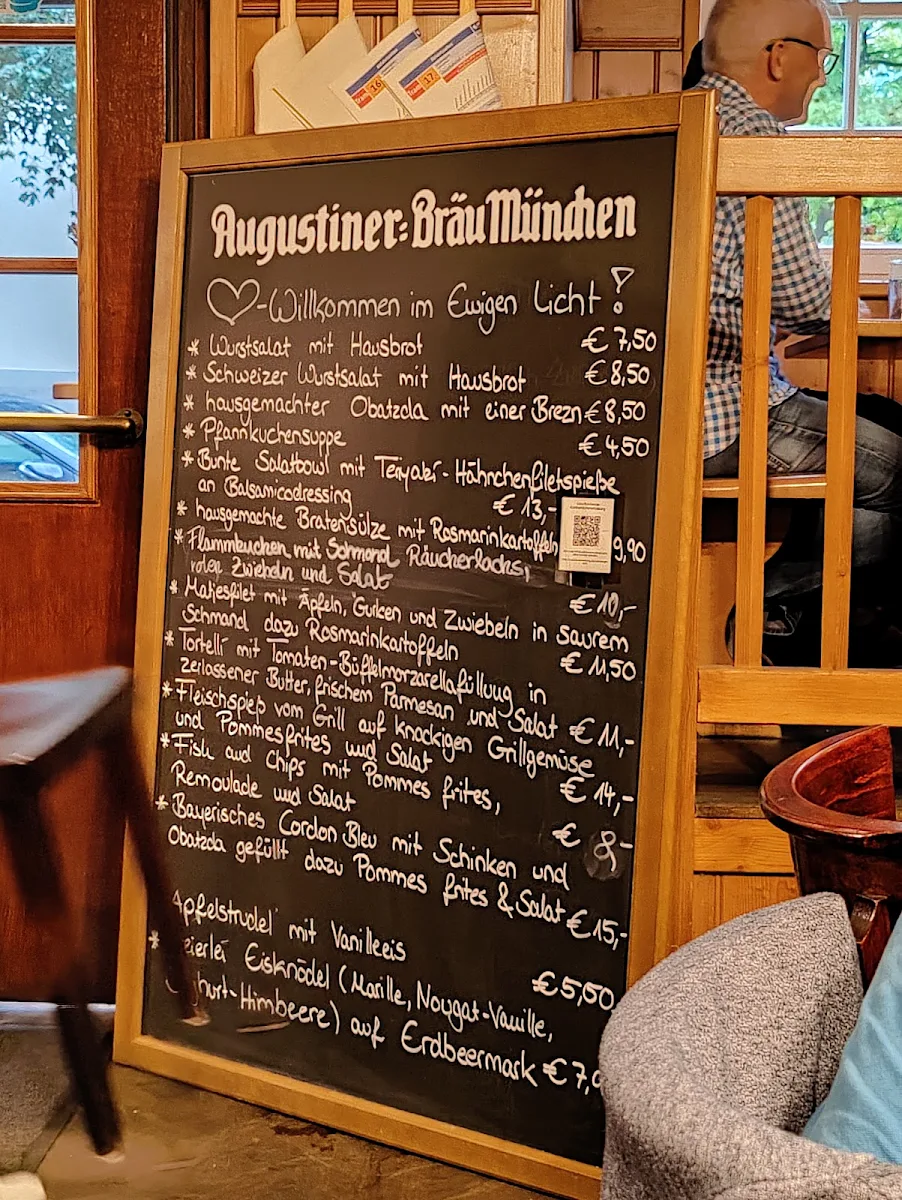 16
17
Augustiner-Bräu München
-Willkommen im Ewigen Licht!
* Wurstsalat mit Hausbrot € 7,50
* Schweizer Wurstsalat mit Hausbrot € 8,50
* hausgemachter Obatzda mit einer Brezn € 8,50
* Pfannkuchensuppe € 4,50
* Bunte Salatbowl mit Teriyaki-Hähnchenfiletspieße
an Balsamicodressing € 13,-
* hausgemachte Bratensülze mit Rosmarinkartoffeln 9,90
* Flammkuchen mit Schmand, Räucherlachs,
roten Zwiebeln und Salat € 10,-
* Matjesfilet mit Äpfeln, Gurken und Zwiebeln in saurem
Schmand dazu Rosmarinkartoffeln € 11,50
* Tortelli mit Tomaten-Büffelmorzarellafüllung in
zerlassener Butter, frischem Parmesan und Salat € 11,-
* Fleischspieß vom Grill auf knackigen Grillgemüse
und Pommesfrites und Salat € 14,-
* Fish and Chips mit Pommes frites,
Remoulade und Salat € 8,-
* Bayerisches Cordon Bleu mit Schinken und
Obatzda gefüllt dazu Pommes frites & Salat € 15,-
Apfelstrudel mit Vanilleeis € 5,50
* Eisknödel (Marille, Nougat-Vanille,
-Himbeere) auf Erdbeermark € 7,0